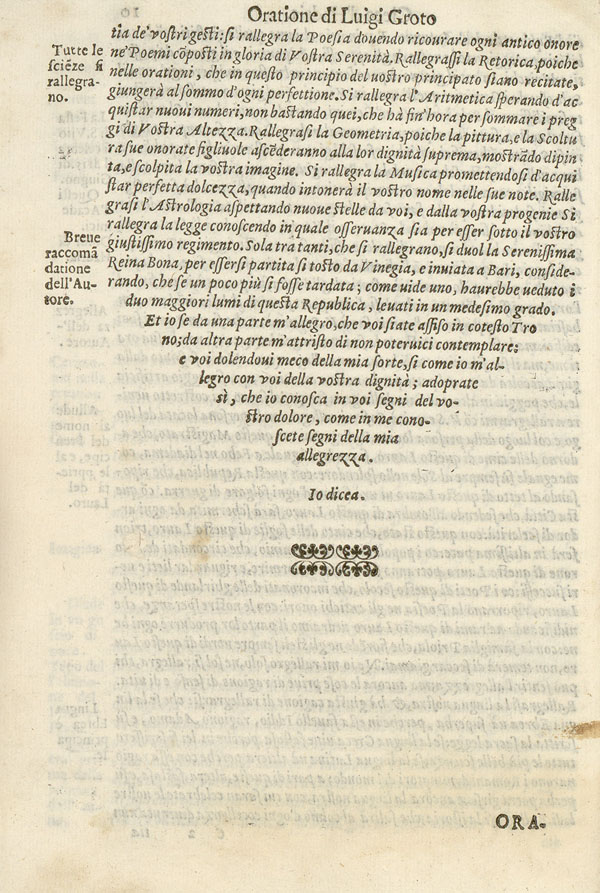 Oratione di Luigi Groto
tia de' vostri gesti: si rallegra la Poesia douendo ricourare ogni antico onore
ne' Poemi cõposti in gloria di Vostra Serenità. Rallegrassi la Retorica, poiche
nelle orationi, che in questo principio del uostro principato siano recitate,
giungerà al sommo d'ogni perfettione. Si rallegra l'Aritmetica sperando d'ac
quistar nuoui numeri, non bastando quei, che hà fin'hora per sommare i preg
gi di Vostra Altezza. Rallegrasi la Geometria, poiche la pittura, e la Scoltu
ra sue onorate figliuole ascẽderanno alla lor dignità suprema, mostrãdo dipin
ta, e scolpita la vostra imagine. Si rallegra la Musica promettendosi d'acqui
star perfetta dolcezza, quando intonerà il vostro nome nelle sue note. Ralle
grasi l'Astrologia aspettando nuoue stelle da voi, e dalla vostra progenie Si
rallegra la legge conoscendo in quale osseruanza sia per esser sotto il vostro
giustissimo regimento. Sola tra tanti, che si rallegrano, si duol la Serenissima
Reina Bona, per essersi partita si tosto da Vinegia, e inuiata a Bari, conside-
rando, che se un poco più si fosse tardata; come uide uno, haurebbe ueduto i
duo maggiori lumi di questa Republica, leuati in un medesimo grado.
Et io se da una parte m'allegro, che voi siate assiso in cotesto Tro
no; da altra parte m'attristo di non poterui contemplare:
e voi dolendoui meco della mia sorte, si come io m'al-
legro con voi della vostra dignità; adoprate
sì, che io conosca in voi segni del vo-
stro dolore, come in me cono-
scete segni della mia
allegrezza.
Io dicea.
ORA.
Tutte le
sciẽze si
rallegra-
no.
Breue
raccomã
datione
dell'Au-
tore.